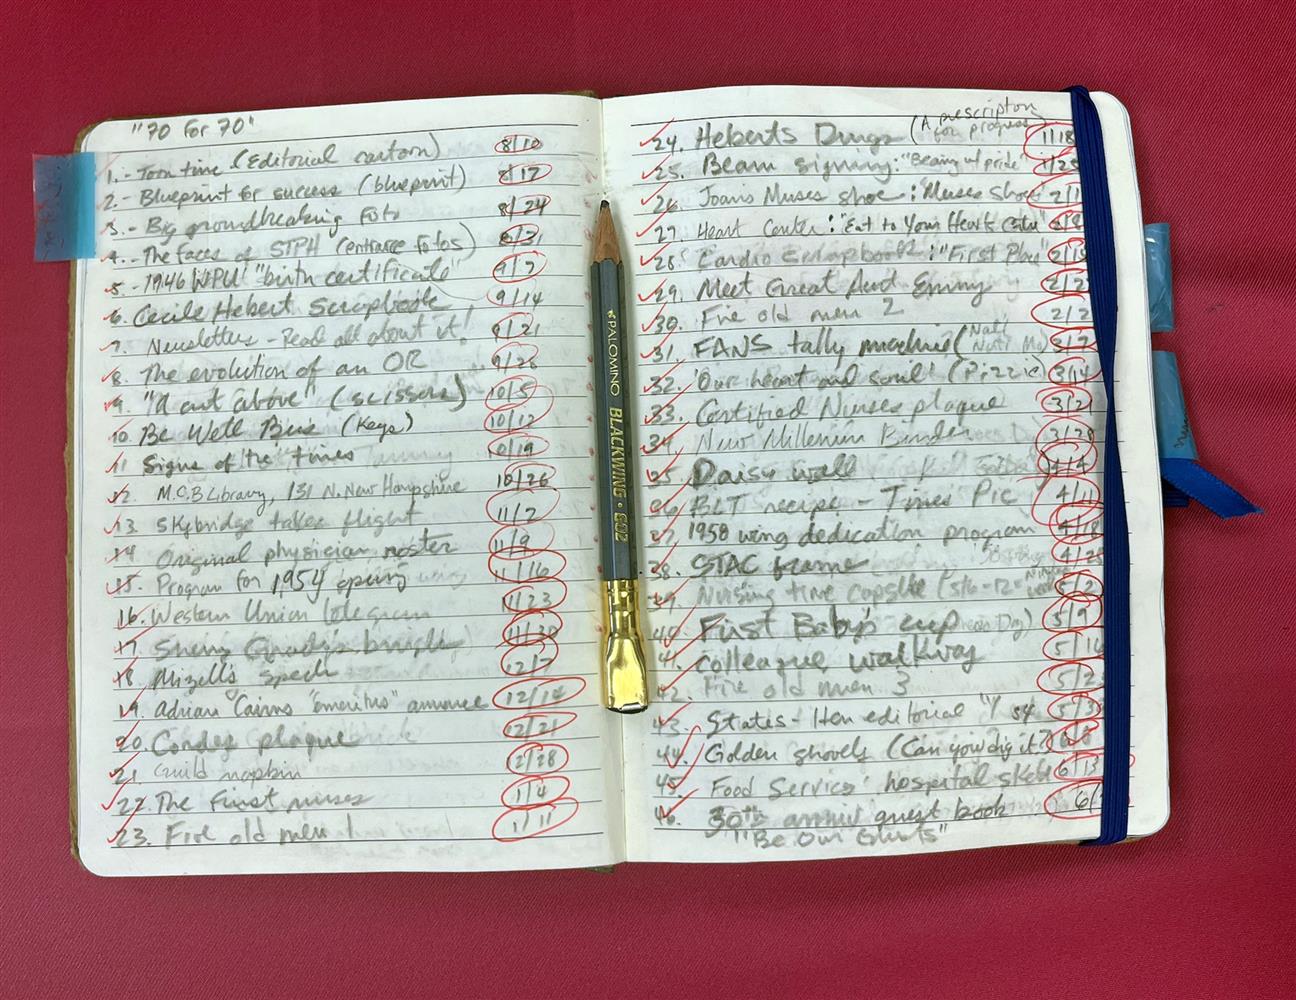 "70 For 70"
1.- Toon time (Editorial cartoon) 8/10
2.- Blueprint for success (blueprint) 8/17
3.- Big groundbreaking foto 8/24
4.- The faces of STPH (entrance fotos) 8/31
5.- 1946 WPU "birth certificate" 9/7
6. Cecile Hebert Scrapbook 9/14
7. Newsletters - Read all about it! 9/21
8. The evolution of an OR 9/28
9. "A cut above" (scissors) 10/5
10. Be Well Bus (Keys) 10/12
11 Signs of the times 10/19
12. M.C.B Library, 131 N. New Hampshire 10/26
13 Skybridge takes flight 11/2
14 Original physician roster 11/9
15. Program for 1954 opening 11/16
16. Western Union telegram 11/23
17. 11/30
18. Mizell's speech 12/7
19. Adrian Cairns "emeritus" 12/14
20. Cordes plaque 12/21
21. Guild napkin 12/28
22. The First nurses 1/4
23. Five old men 1 1/11
24. Heberts Drugs (A prescription for progress) 1/18
25. Beam signing: "Beaming w/ pride" 1/25
26. Joan's Muses shoe: "Muses Shoe 2/1
27. Heart Center: "Eat to Your Heart 2/8
28. Cardio Scrapbook: "First 2/15
29. Meet Great Aunt Emmy 2/2
30. Five old men 2 2/2
31. FANS tally machine 3/7
32. "Our heart and soul" 3/14
33. Certified Nurses plaque 3/21
34. New Millenium Binder 3/28
35 Daisy wall 4/4
36 BLT recipe - Times Pic 4/11
37. 1958 wing dedication program 4/18
38. STAC frame 4/25
39. Nursing time capsule 5/2
40. First Baby's cup 5/9
41. Colleague walkway 5/16
42. Five old men 3 5/2
43. States-Item editorial 54 5/30
44. Golden shovels (Can you dig it?)
45. Food Service hospital 6/13
46. 30th anniv guest book 6/
"Be Our Guests"
PALOMINO BLACKWING · 602